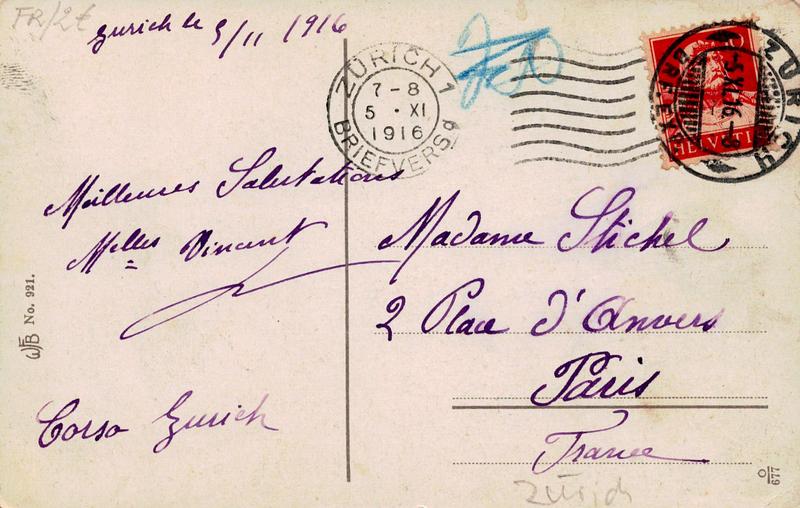 FR/2€
Zurich le 5/11 1916
ZÜRICH 1
7-8
5 · XI
1916
BRIEFVERSd
ZÜRICH
HELVETI
Meilleures Salutations
Melles Vincent
Madame Stichel
2 Place d'Anvers
Paris
France
Corso Zurich
WFB No. 921.
O
677
Zürich